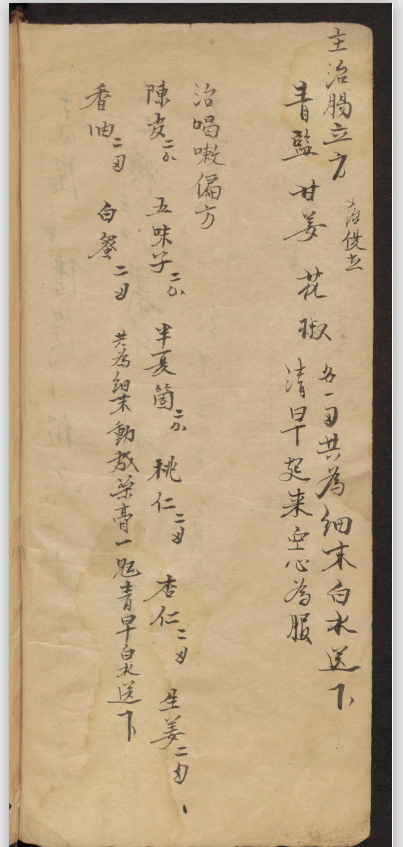 主治腸立方
治促立
青監 甘姜 花椒
各一刃共為細末白水送下
清早起来空心為服
治喝嗽偏方
陳皮二分 五味子二分 半夏箇二分 桃仁二刃 杏仁二刃 生姜二刃
香油二刃 白蜜二刃 共為細末動成藥膏一 青早白水送下